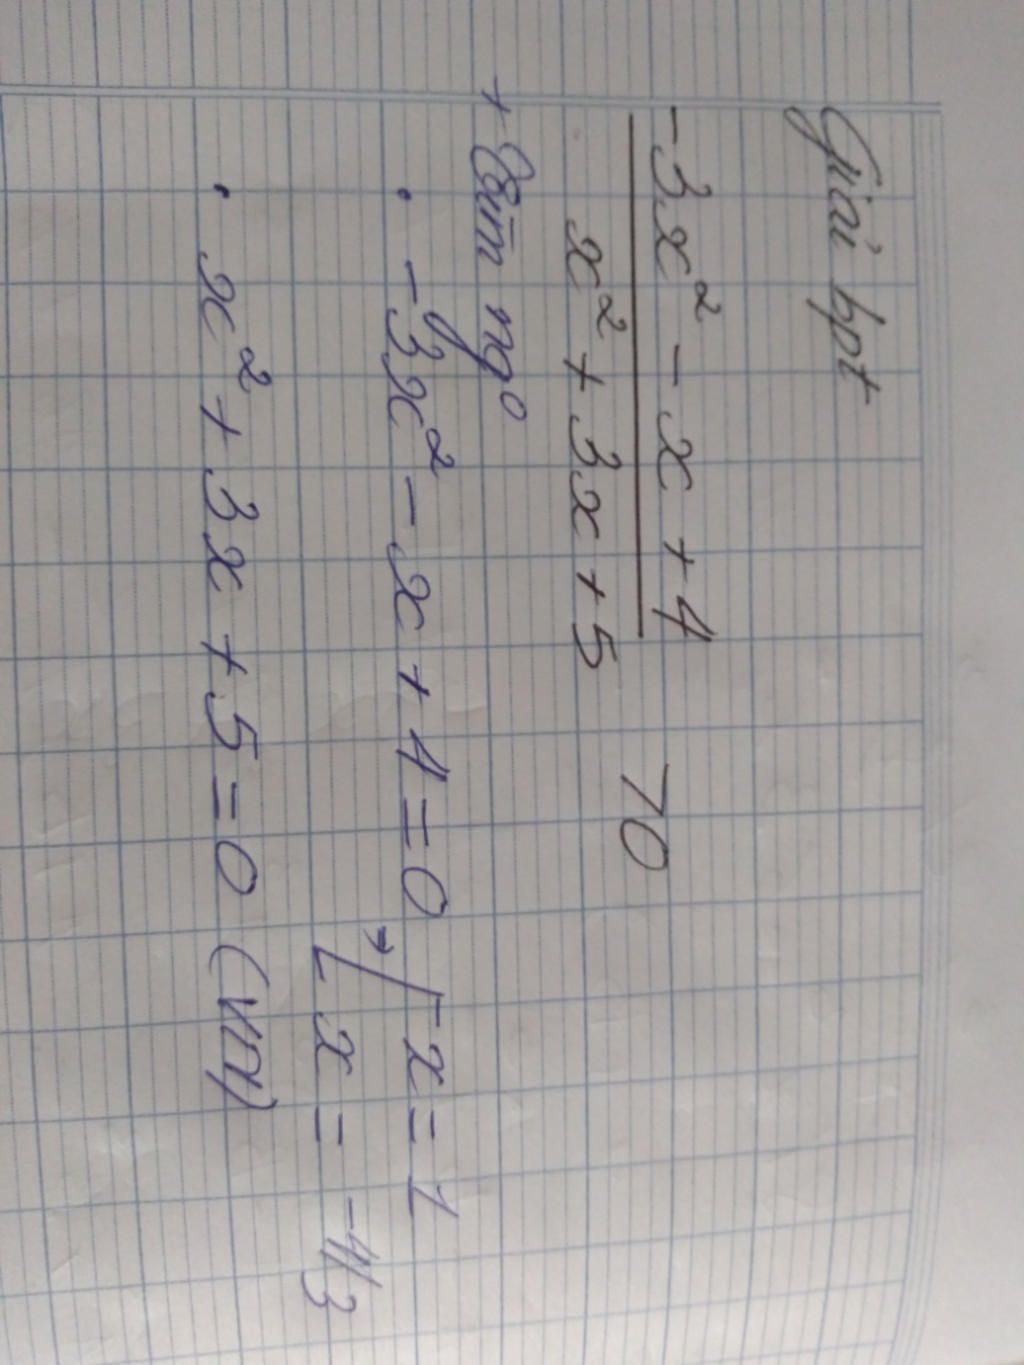 Giải bpt
-3x² - x + 4
x² + 3x + 5
>0
+ Tìm ngo
• -3x² - x + 4 = 0 ⇒ [ x = 1
[ x = -4/3
• x² + 3x + 5 = 0 (VN)